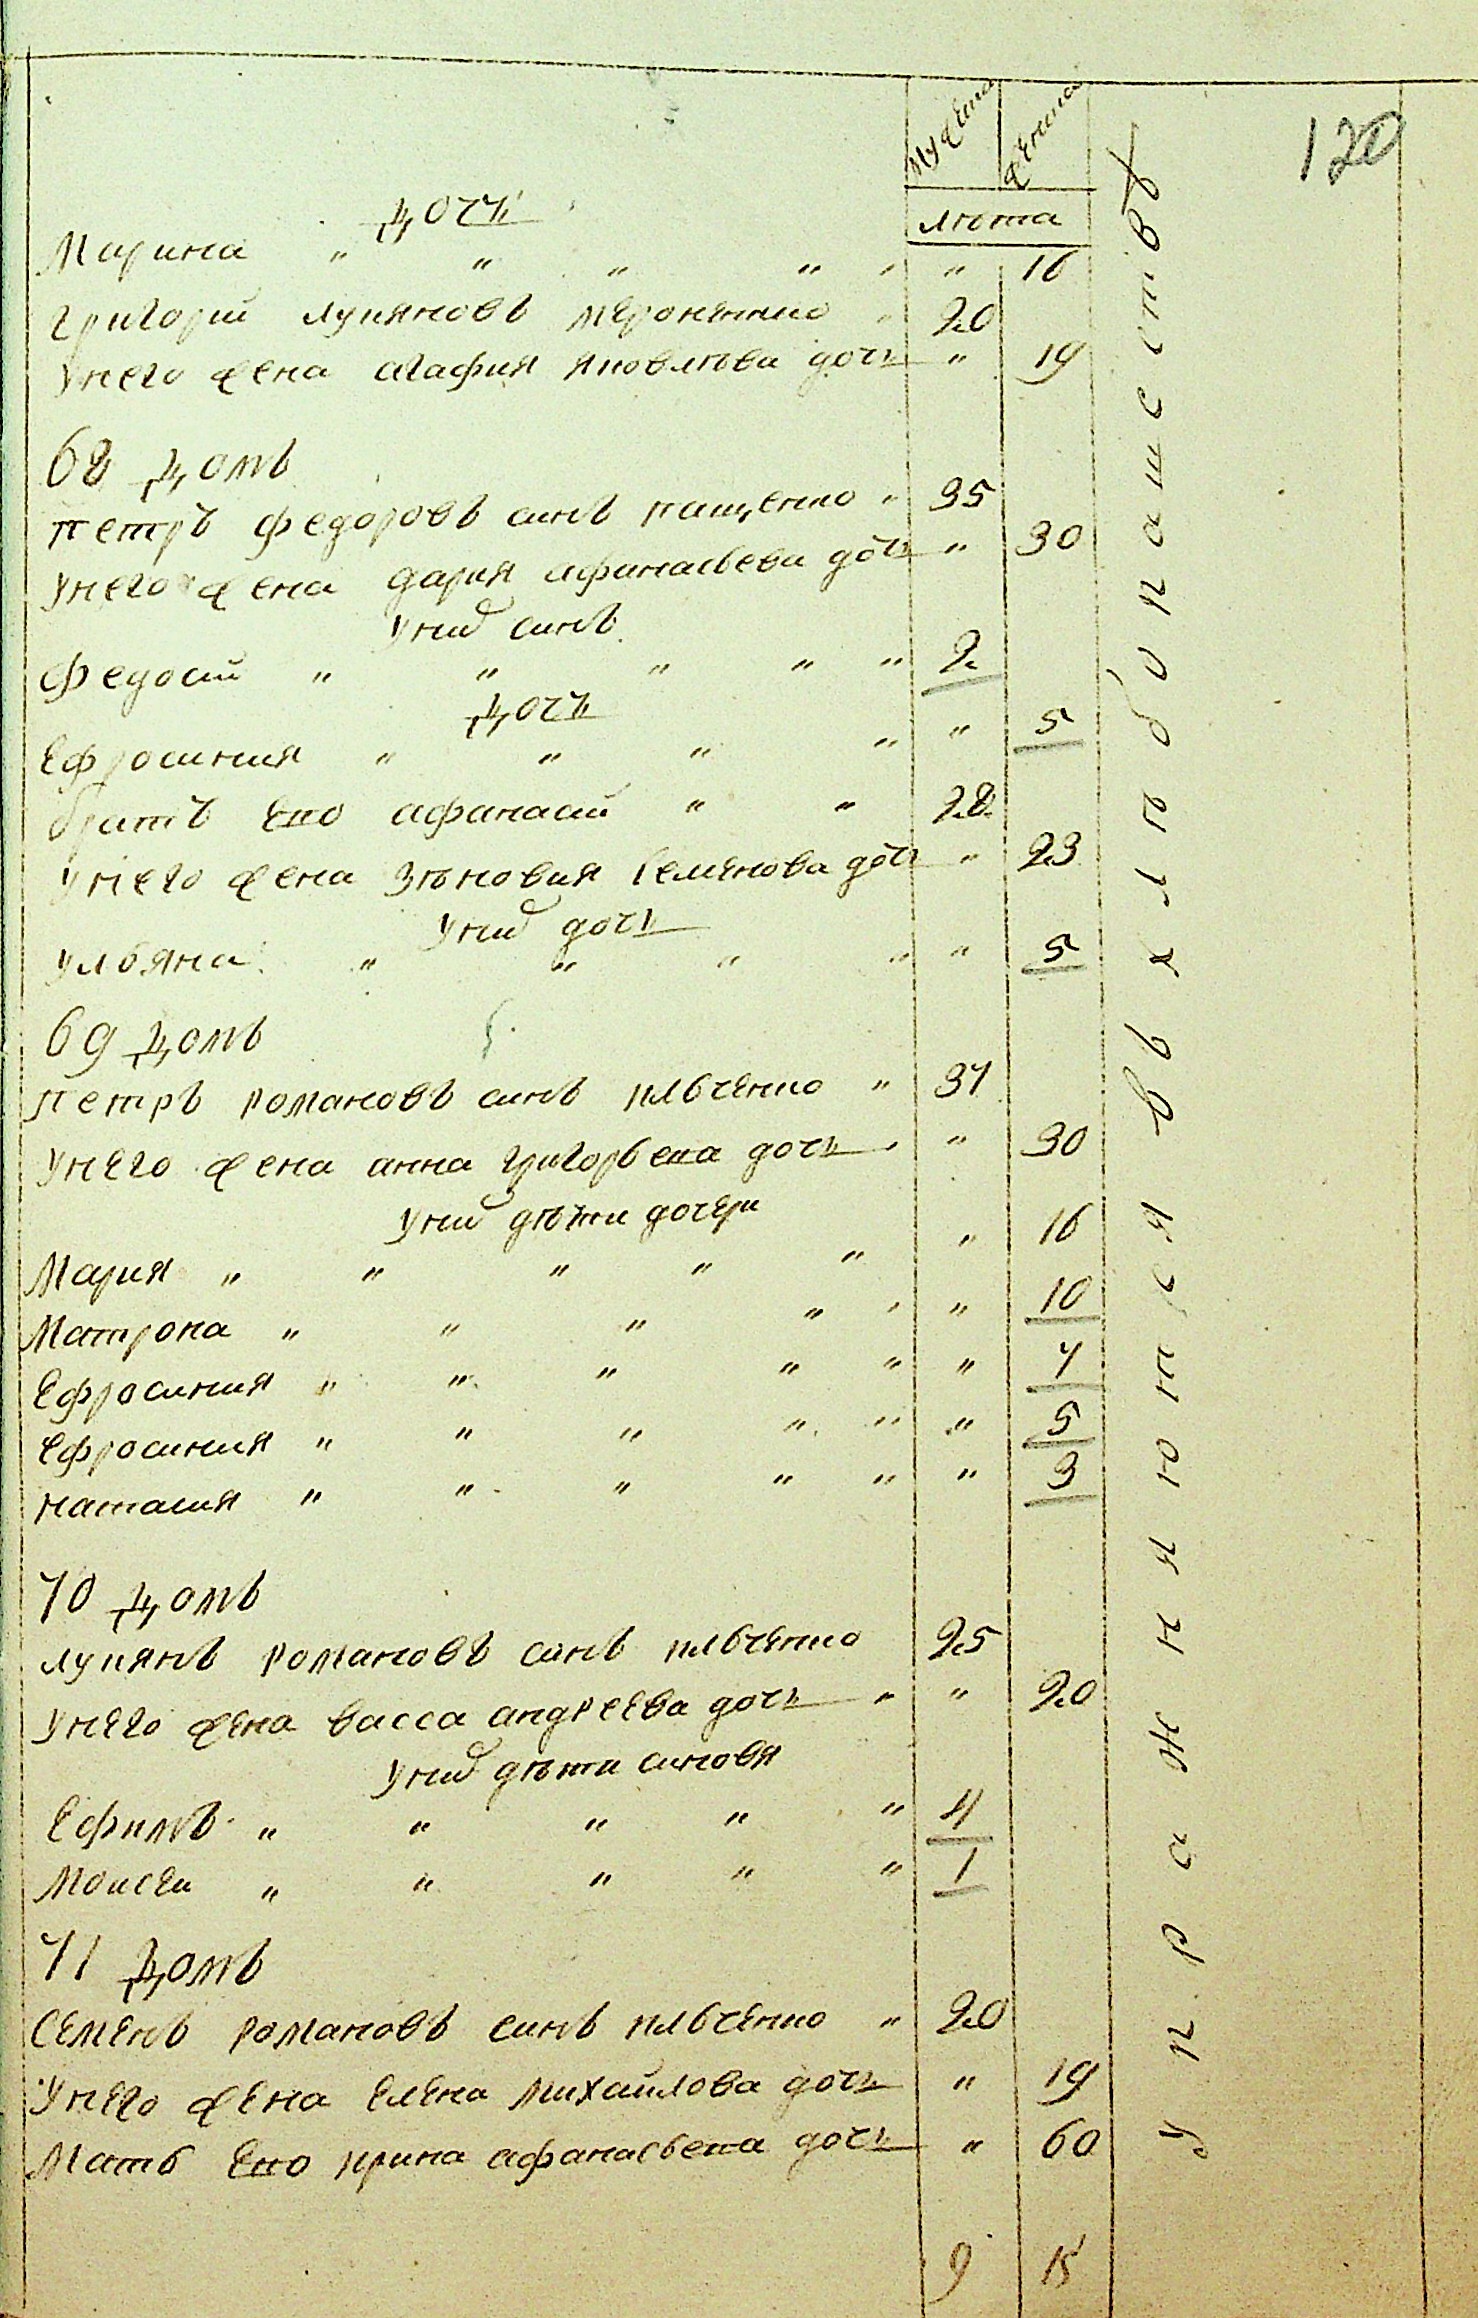 120
мужеска женска
лѣта
дочь
Марина " " " " " " 16
григорий лукяновъ мероненко " 20
унего жена агафия яковлѣва дочь " 19
68 домъ
петръ федоровъ синъ пащенко " 35
унего жена дария афанасьева дочь " 30
уних синъ
федосий " " " " " 2
дочь
ефросиния " " " " " 5
братъ его афанасий " " 28
унего жена зѣновия семенова дочь " 23
уних дочь
ульяна " " " " " 5
69 домъ
петръ романовъ синъ ильченко " 37
унего жена анна григорьева дочь " " 30
уних дѣти дочери
Мария " " " " " " 16
Матрона " " " " " " 10
ефросиния " " " " " " 7
ефросиния " " " " " " 5
наталия " " " " " " 3
70 домъ
лукянъ романовъ синъ ильченко 25
унего жена васса андреева дочь " " 20
уних дѣти синовя
Ефимъ " " " " " 4
Моисеи " " " " " 1
71 домъ
Семенъ романовъ синъ ильченко " 20
Унего жена елена михайлова дочь " 19
Мать его ирина афанасьева дочь " 60
9 15
упражняются въ хлѣбопашествѣ